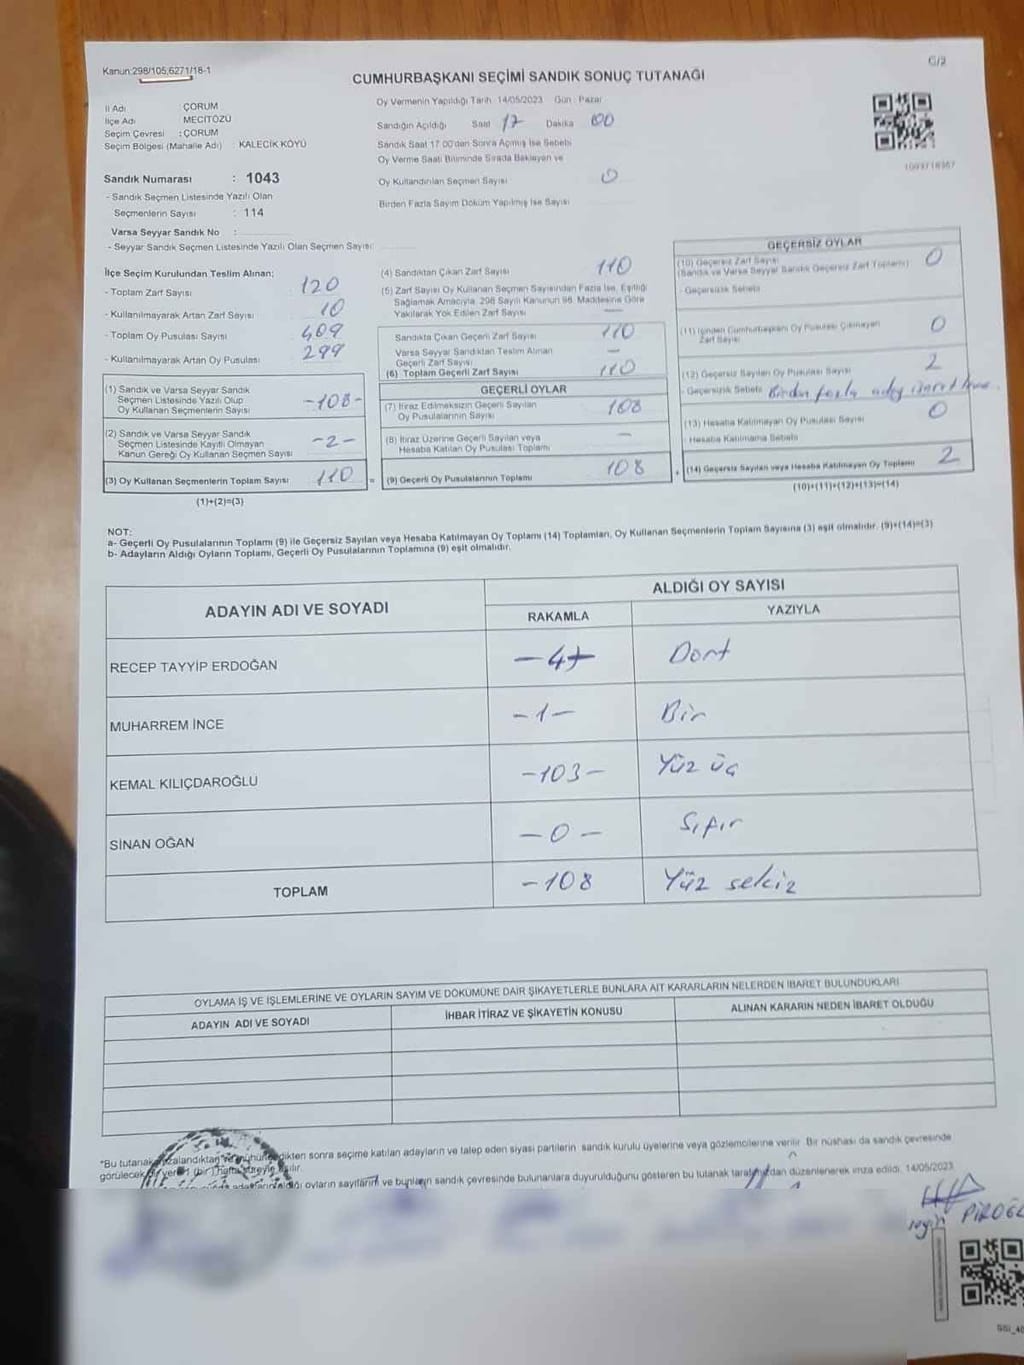 Kanun:298/105,6271/18-1
G/2
CUMHURBAŞKANI SEÇİMİ SANDIK SONUÇ TUTANAĞI
İl Adı ÇORUM
İlçe Adı MECİTÖZÜ
Seçim Çevresi : ÇORUM
Seçim Bölgesi (Mahalle Adı) : KALECİK KÖYÜ
Sandık Numarası : 1043
- Sandık Seçmen Listesinde Yazılı Olan
Seçmenlerin Sayısı : 114
Varsa Seyyar Sandık No :
- Seyyar Sandık Seçmen Listesinde Yazılı Olan Seçmen Sayısı:
Oy Vermenin Yapıldığı Tarih 14/05/2023 Gün : Pazar
Sandığın Açıldığı Saat 17 Dakika 00
Sandık Saat 17.00'den Sonra Açılmış İse Sebebi
Oy Verme Saati Bitiminde Sırada Bekleyen ve
Oy Kullandırılan Seçmen Sayısı 0
Birden Fazla Sayım Döküm Yapılmış İse Sayısı
1093718367
İlçe Seçim Kurulundan Teslim Alınan:
- Toplam Zarf Sayısı 120
- Kullanılmayarak Artan Zarf Sayısı 10
- Toplam Oy Pusulası Sayısı 409
- Kullanılmayarak Artan Oy Pusulası 299
(1) Sandık ve Varsa Seyyar Sandık
Seçmen Listesinde Yazılı Olup
Oy Kullanan Seçmenlerin Sayısı -108-
(2) Sandık ve Varsa Seyyar Sandık
Seçmen Listesinde Kayıtlı Olmayan
Kanun Gereği Oy Kullanan Seçmen Sayısı -2-
(3) Oy Kullanan Seçmenlerin Toplam Sayısı 110 =
(1)+(2)=(3)
(4) Sandıktan Çıkan Zarf Sayısı 110
(5) Zarf Sayısı Oy Kullanan Seçmen Sayısından Fazla İse, Eşitliği
Sağlamak Amacıyla, 298 Sayılı Kanunun 98. Maddesine Göre
Yakılarak Yok Edilen Zarf Sayısı —
Sandıkta Çıkan Geçerli Zarf Sayısı 110
Varsa Seyyar Sandıktan Teslim Alınan
Geçerli Zarf Sayısı —
(6) Toplam Geçerli Zarf Sayısı 110
GEÇERLİ OYLAR
(7) İtiraz Edilmeksizin Geçerli Sayılan
Oy Pusulalarının Sayısı 108
(8) İtiraz Üzerine Geçerli Sayılan veya
Hesaba Katılan Oy Pusulası Toplamı —
(9) Geçerli Oy Pusulalarının Toplamı 108 +
GEÇERSİZ OYLAR
(10) Geçersiz Zarf Sayısı 0
(Sandık ve Varsa Seyyar Sandık Geçersiz Zarf Toplamı)
- Geçersizlik Sebebi
(11) İçinden Cumhurbaşkanı Oy Pusulası Çıkmayan 0
Zarf Sayısı
(12) Geçersiz Sayılan Oy Pusulası Sayısı 2
- Geçersizlik Sebebi Birden fazla aday
(13) Hesaba Katılmayan Oy Pusulası Sayısı 0
- Hesaba Katılmama Sebebi
(14) Geçersiz Sayılan veya Hesaba Katılmayan Oy Toplamı 2
(10)+(11)+(12)+(13)=(14)
NOT:
a- Geçerli Oy Pusulalarının Toplamı (9) ile Geçersiz Sayılan veya Hesaba Katılmayan Oy Toplamı (14) Toplamları, Oy Kullanan Seçmenlerin Toplam Sayısına (3) eşit olmalıdır. (9)+(14)=(3)
b- Adayların Aldığı Oyların Toplamı, Geçerli Oy Pusulalarının Toplamına (9) eşit olmalıdır.
ADAYIN ADI VE SOYADI
ALDIĞI OY SAYISI
RAKAMLA
YAZIYLA
RECEP TAYYİP ERDOĞAN -4- Dört
MUHARREM İNCE -1- Bir
KEMAL KILIÇDAROĞLU -103- Yüz üç
SİNAN OĞAN -0- Sıfır
TOPLAM -108 Yüz sekiz
OYLAMA İŞ VE İŞLEMLERİNE VE OYLARIN SAYIM VE DÖKÜMÜNE DAİR ŞİKAYETLERLE BUNLARA AİT KARARLARIN NELERDEN İBARET BULUNDUKLARI
ADAYIN ADI VE SOYADI
İHBAR İTİRAZ VE ŞİKAYETİN KONUSU
ALINAN KARARIN NEDEN İBARET OLDUĞU
*Bu tutanak sonra seçime katılan adayların ve talep eden siyasi partilerin sandık kurulu üyelerine veya gözlemcilerine verilir. Bir nüshası da sandık çevresinde
görülecek bir yere 1 (bir) hafta süreyle asılır.
oyların sayıların ve bunların sandık çevresinde bulunanlara duyurulduğunu gösteren bu tutanak tarafından düzenlenerek imza edildi. 14/05/2023